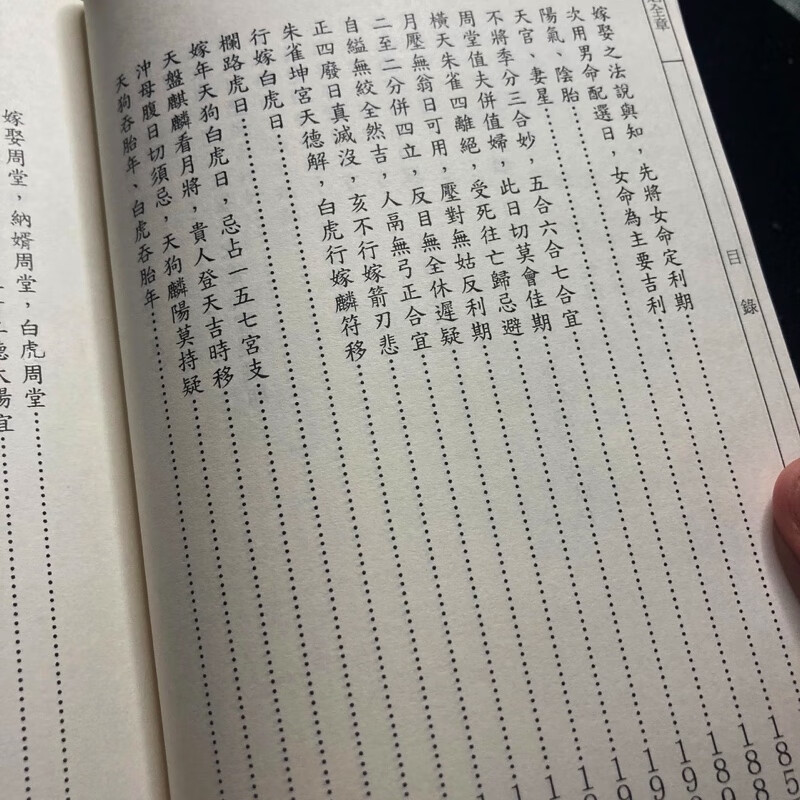 全章
目錄
嫁娶之法說與知，先將女命定利期……185
次用男命配選日，女命為主要吉利……
陽氣、陰胎……
天官、妻星……
不將季分三合妙，五合六合七合宜……
周堂值夫併值婦，此日切莫會佳期……
橫天朱雀四離絕，受死往亡歸忌避……
月壓無翁日可用，壓對無姑反利期……
二至二分併四立，反目無全休遲疑……
自縊無絞全然吉，人鬲無弓正合宜……
正四廢日真滅沒，亥不行嫁箭刃悲……
朱雀坤宮天德解，白虎行嫁麟符移……
行嫁白虎日……
欄路虎日……
嫁年天狗白虎日，忌占一五七宮支……
天盤麒麟看月將，貴人登天吉時移……
沖母腹日切須忌，天狗麟陽莫持疑……
天狗吞胎年、白虎吞胎年……
嫁娶周堂，納婿周堂，白虎周堂……
德太陽宜……